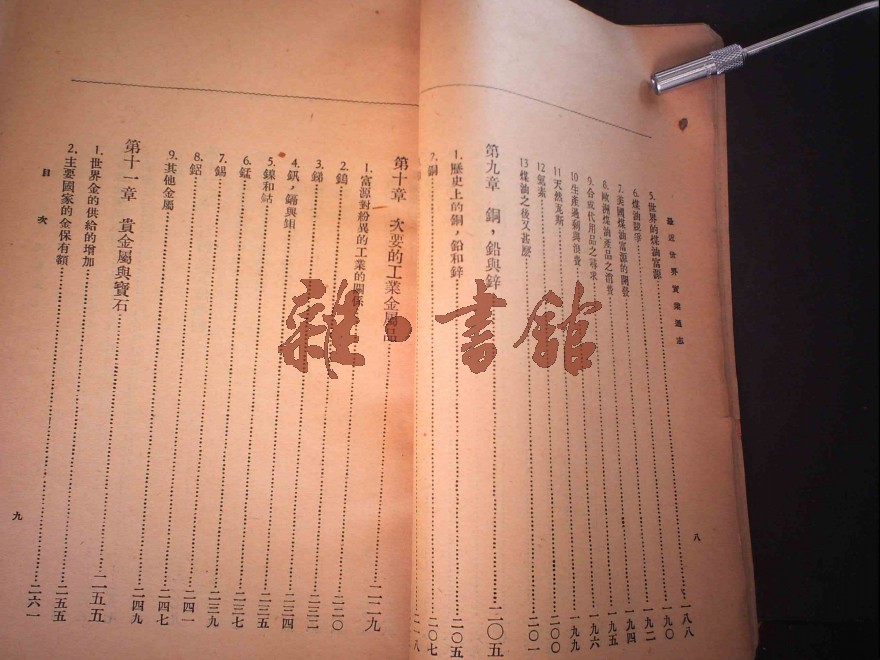 最近世界實業通志
5. 世界的煤油富源 一八八
6. 煤油競爭 一九〇
7. 美國煤油富源的開發 一九二
8. 歐洲煤油產品之消費 一九四
9. 合成代用品之尋求 一九五
10 生產過剩與浪費 一九六
11 天然瓦斯 一九九
12 氦素 二〇〇
13 煤油之後又甚麼 二〇一
第九章 銅，鉛與鋅 二〇五
1. 歷史上的銅，鉛和鋅 二〇五
2. 銅 二〇七
二一八
八
第十章 次要的工業金屬品 二一九
1. 富源對紛異的工業的關係 二二〇
2. 鎢 二三二
3. 銻 二三四
4. 釩，鎘與 二三五
5. 鎳和鈷 二三七
6. 錳 二三九
7. 錫 二四一
8. 鋁 二四七
9. 其他金屬 二四九
第十一章 貴金屬與寶石 二五五
1. 世界金的供給的增加 二五五
2. 主要國家的金保有額 二六一
目次
九
雜·書館